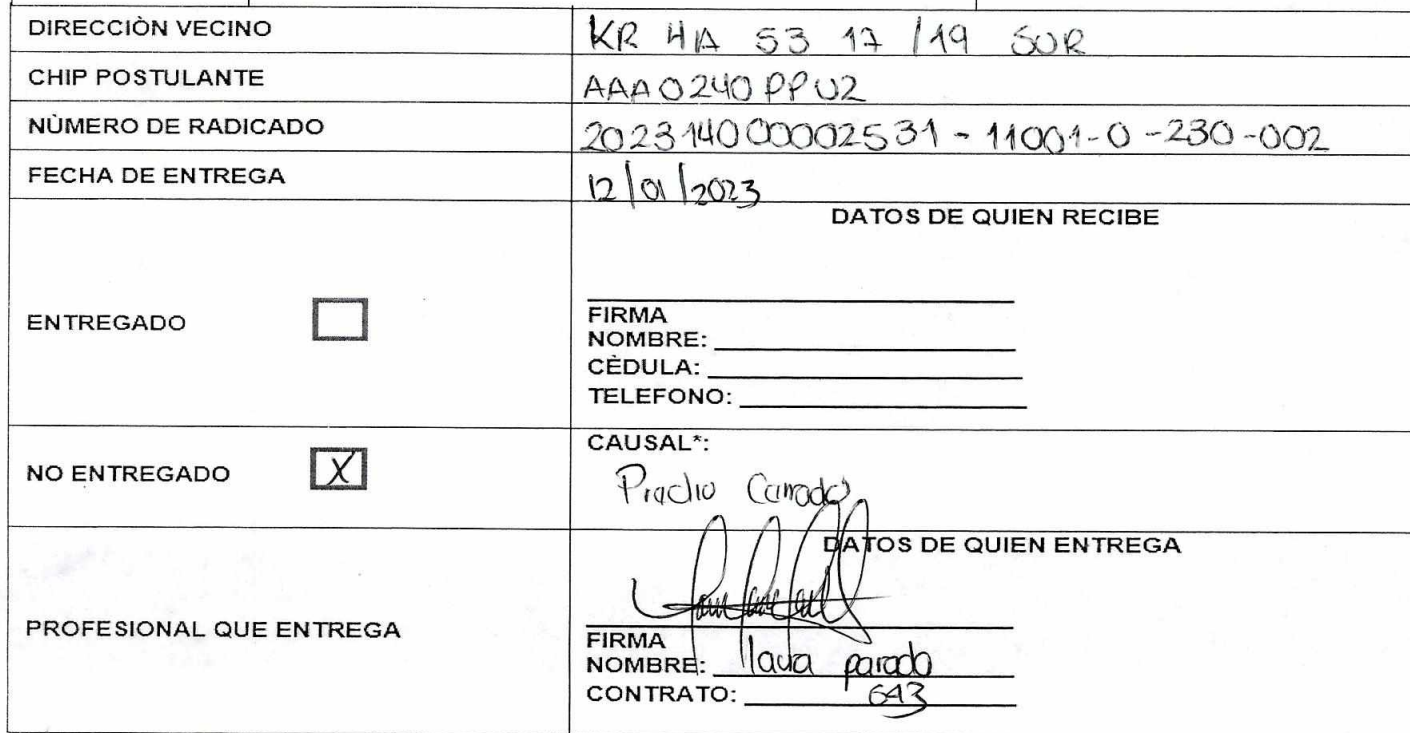 DIRECCIÒN VECINO KR 4A 53 17 / 19 SUR
CHIP POSTULANTE AAA0240PPUZ
NÙMERO DE RADICADO 202314000002531 - 11001-0-230-002
FECHA DE ENTREGA 12/01/2023
DATOS DE QUIEN RECIBE
ENTREGADO
FIRMA
NOMBRE:
CÈDULA:
TELEFONO:
NO ENTREGADO X
CAUSAL*:
Predio Cerrado
DATOS DE QUIEN ENTREGA
PROFESIONAL QUE ENTREGA
FIRMA
NOMBRE: parado
CONTRATO: 643